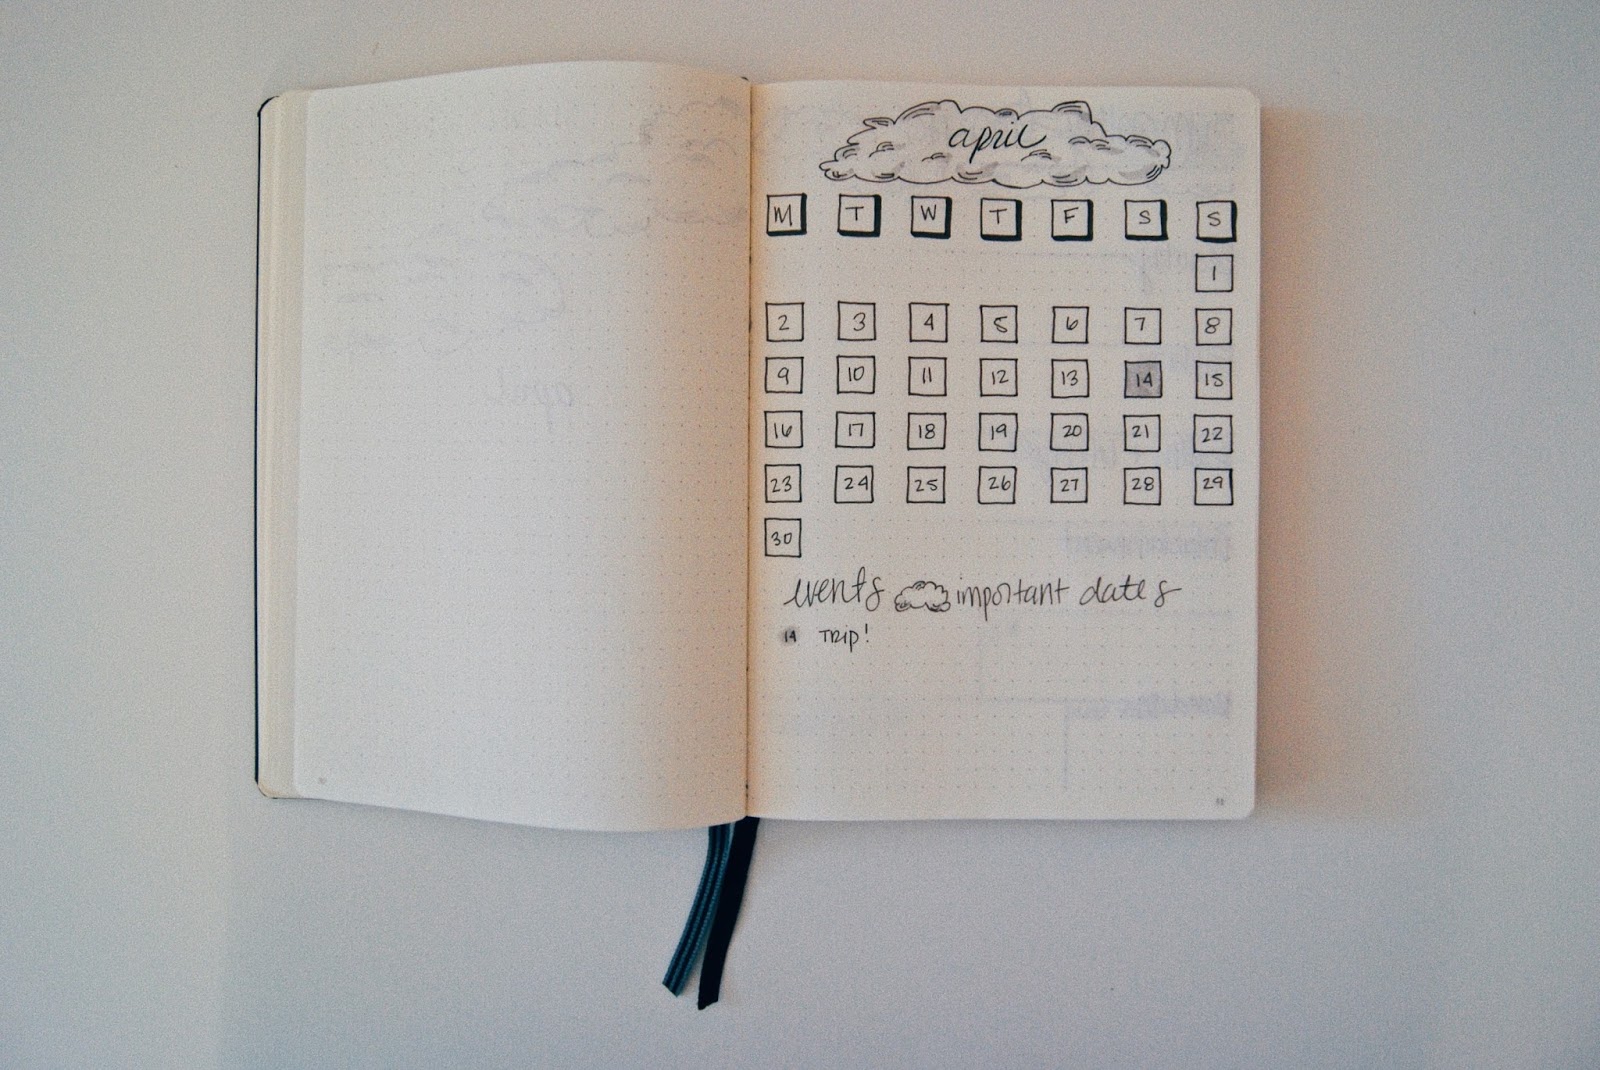 april
M T W T F S S
1
2 3 4 5 6 7 8
9 10 11 12 13 14 15
16 17 18 19 20 21 22
23 24 25 26 27 28 29
30
events important dates
14 TRIP!